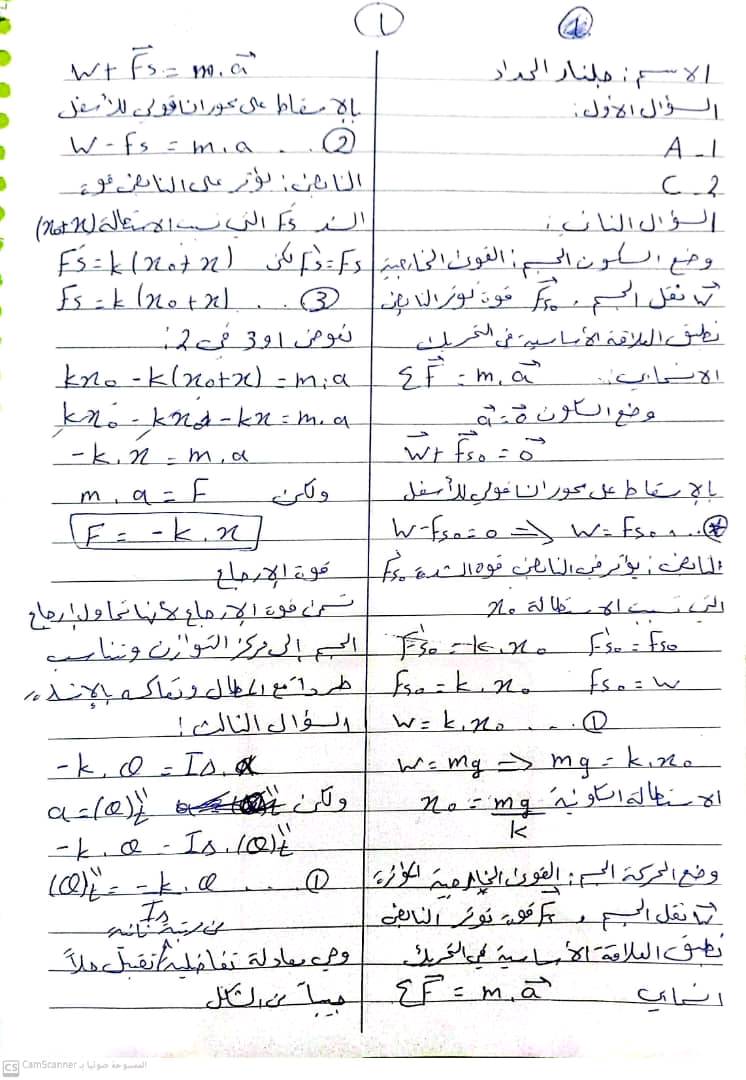 1
1
الاسم: جلنار الحداد
السؤال الأول:
A - 1
C - 2
السؤال الثاني:
وضع السكون الجسم: القوى الخارجية
W⃗ ثقل الجسم، F⃗s₀ قوة توتر النابض
نطبق العلاقة الأساسية في التحريك
الانسحابي: ΣF⃗ = m.a⃗
وضع السكون a⃗ = 0⃗
W⃗ + F⃗s₀ = 0⃗
بالإسقاط على محور شاقولي للأسفل
W - Fs₀ = 0 ⇒ W = Fs₀ ...
النابض: يؤثر في النابض قوة الشدة F's₀
التي تسبب الاستطالة x₀
F's₀ = k.x₀ F's₀ = Fs₀
Fs₀ = k.x₀ Fs₀ = W
W = k.x₀ ... ①
W = mg ⇒ mg = k.x₀
الاستطالة السكونية x₀ = mg/k
وضع الحركة الجسم: القوى الخارجية المؤثرة
W⃗ ثقل الجسم، F⃗s قوة توتر النابض
نطبق العلاقة الأساسية في التحريك
انسحابي ΣF⃗ = m.a⃗
W + F⃗s = m.a⃗
بالإسقاط على محور شاقولي للأسفل
W - Fs = m.a ... ②
النابض: يؤثر على النابض قوة
الشد F's التي تسبب الاستطالة (x₀+x)
F's = k(x₀+x) لكن F's = Fs
Fs = k(x₀+x) ... ③
نعوض 1 و 3 في 2:
kx₀ - k(x₀+x) = m.a
kx₀ - kx₀ - kx = m.a
-k.x = m.a
ولكن m.a = F
F = -k.x
قوة الإرجاع
تسمى قوة الإرجاع لأنها تحاول إرجاع
الجسم إلى مركز التوازن وتتناسب
طرداً مع المطال وتعاكسه بالإشارة
السؤال الثالث:
-k.θ = IΔ.α
ولكن α = (θ)''t
-k.θ = IΔ.(θ)''t
(θ)''t = -k.θ/IΔ ... ①
وهي معادلة تفاضلية من مرتبة ثانية تقبل حلاً
جيبياً من الشكل
CS CamScanner الممسوحة ضوئيا بـ